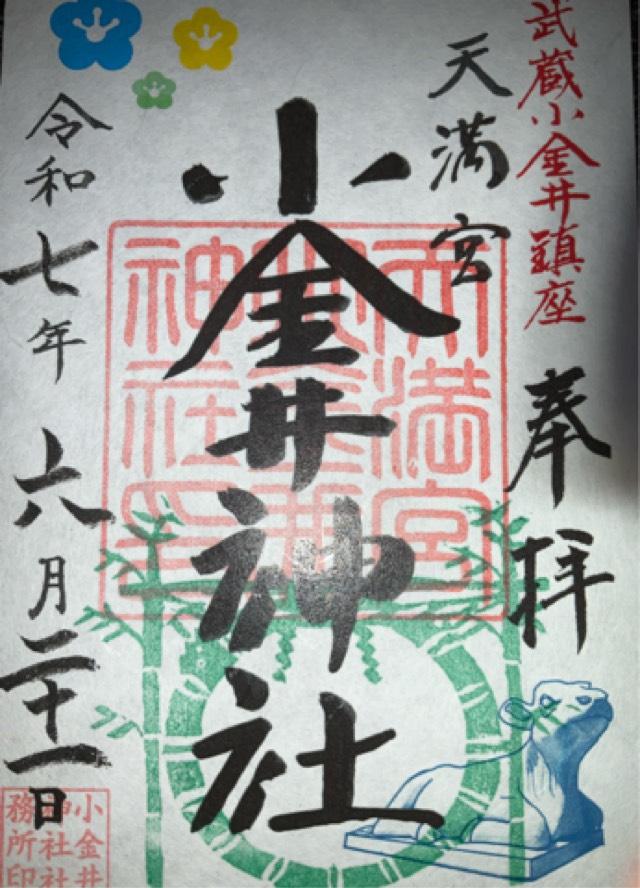 武蔵小金井鎮座
奉拝
天満宮
小金井神社
天満宮
小金井
神社印
令和七年六月二十一日
小金井
神社社
務所印